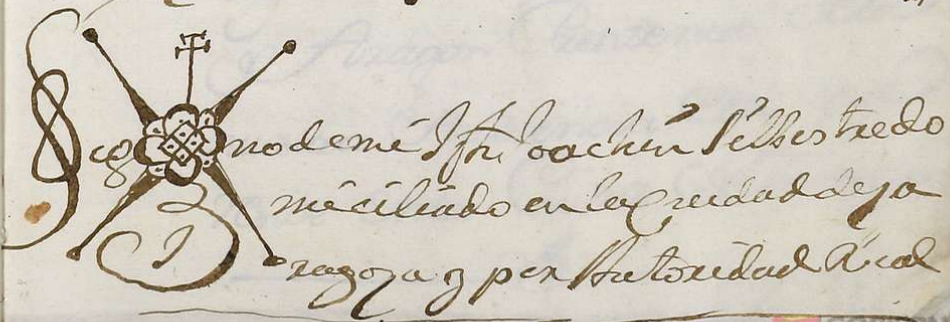 Sig no de mi Joachin Silbestre do
miciliado en la Ciudad de Za
ragoza y por Autoridad Real